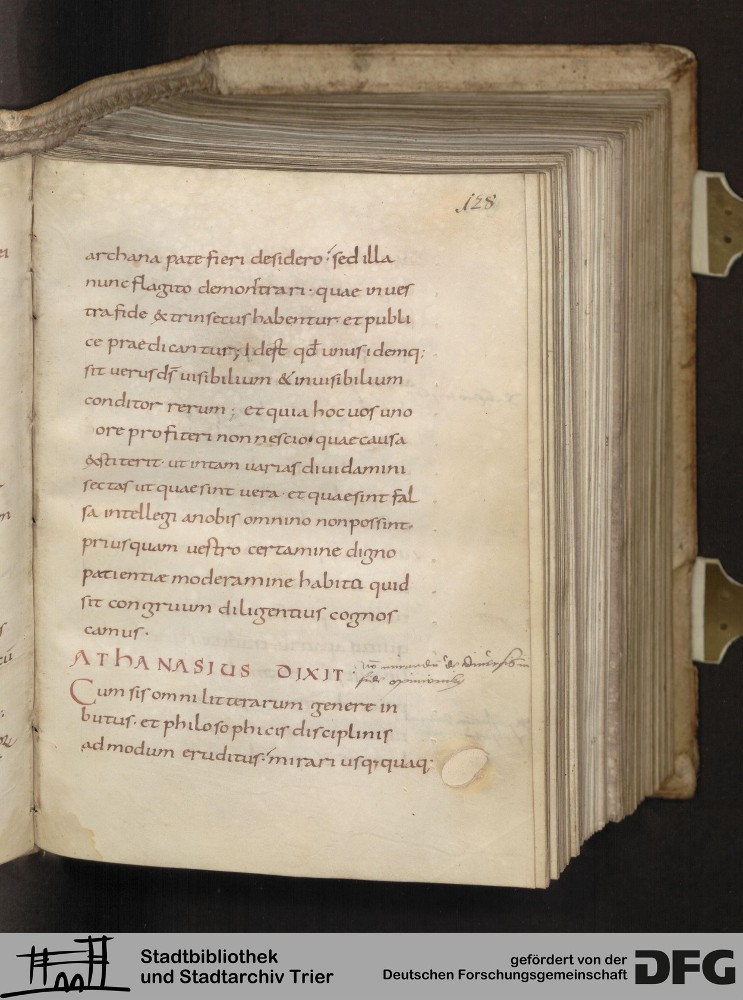 128
archana patefieri desidero· sed illa
nunc flagito demonstrari· quae in ves
tra fide &trinsecus habentur· et publi
ce praedicantur; Id est qđ unus idemq;
sit verus ds̄ visibilium & invisibilium
conditor rerum; et quia hoc vos uno
ore profiteri non nescio· quae causa
&stiterit· ut in tam varias dividamini
sectas ut quae sint vera· et quae sint fal
sa intellegi a nobis omnino non possint·
priusquam vestro certamine digno
patientiæ moderamine habita quid
sit congruum diligentius cognos
camus·
ATHANASIUS DIXIT
Cum sis omni litterarum genere in
butus· et philosophicis disciplinis
admodum eruditus· mirari usq;quaq;
Stadtbibliothek
und Stadtarchiv Trier
gefördert von der
Deutschen Forschungsgemeinschaft
DFG